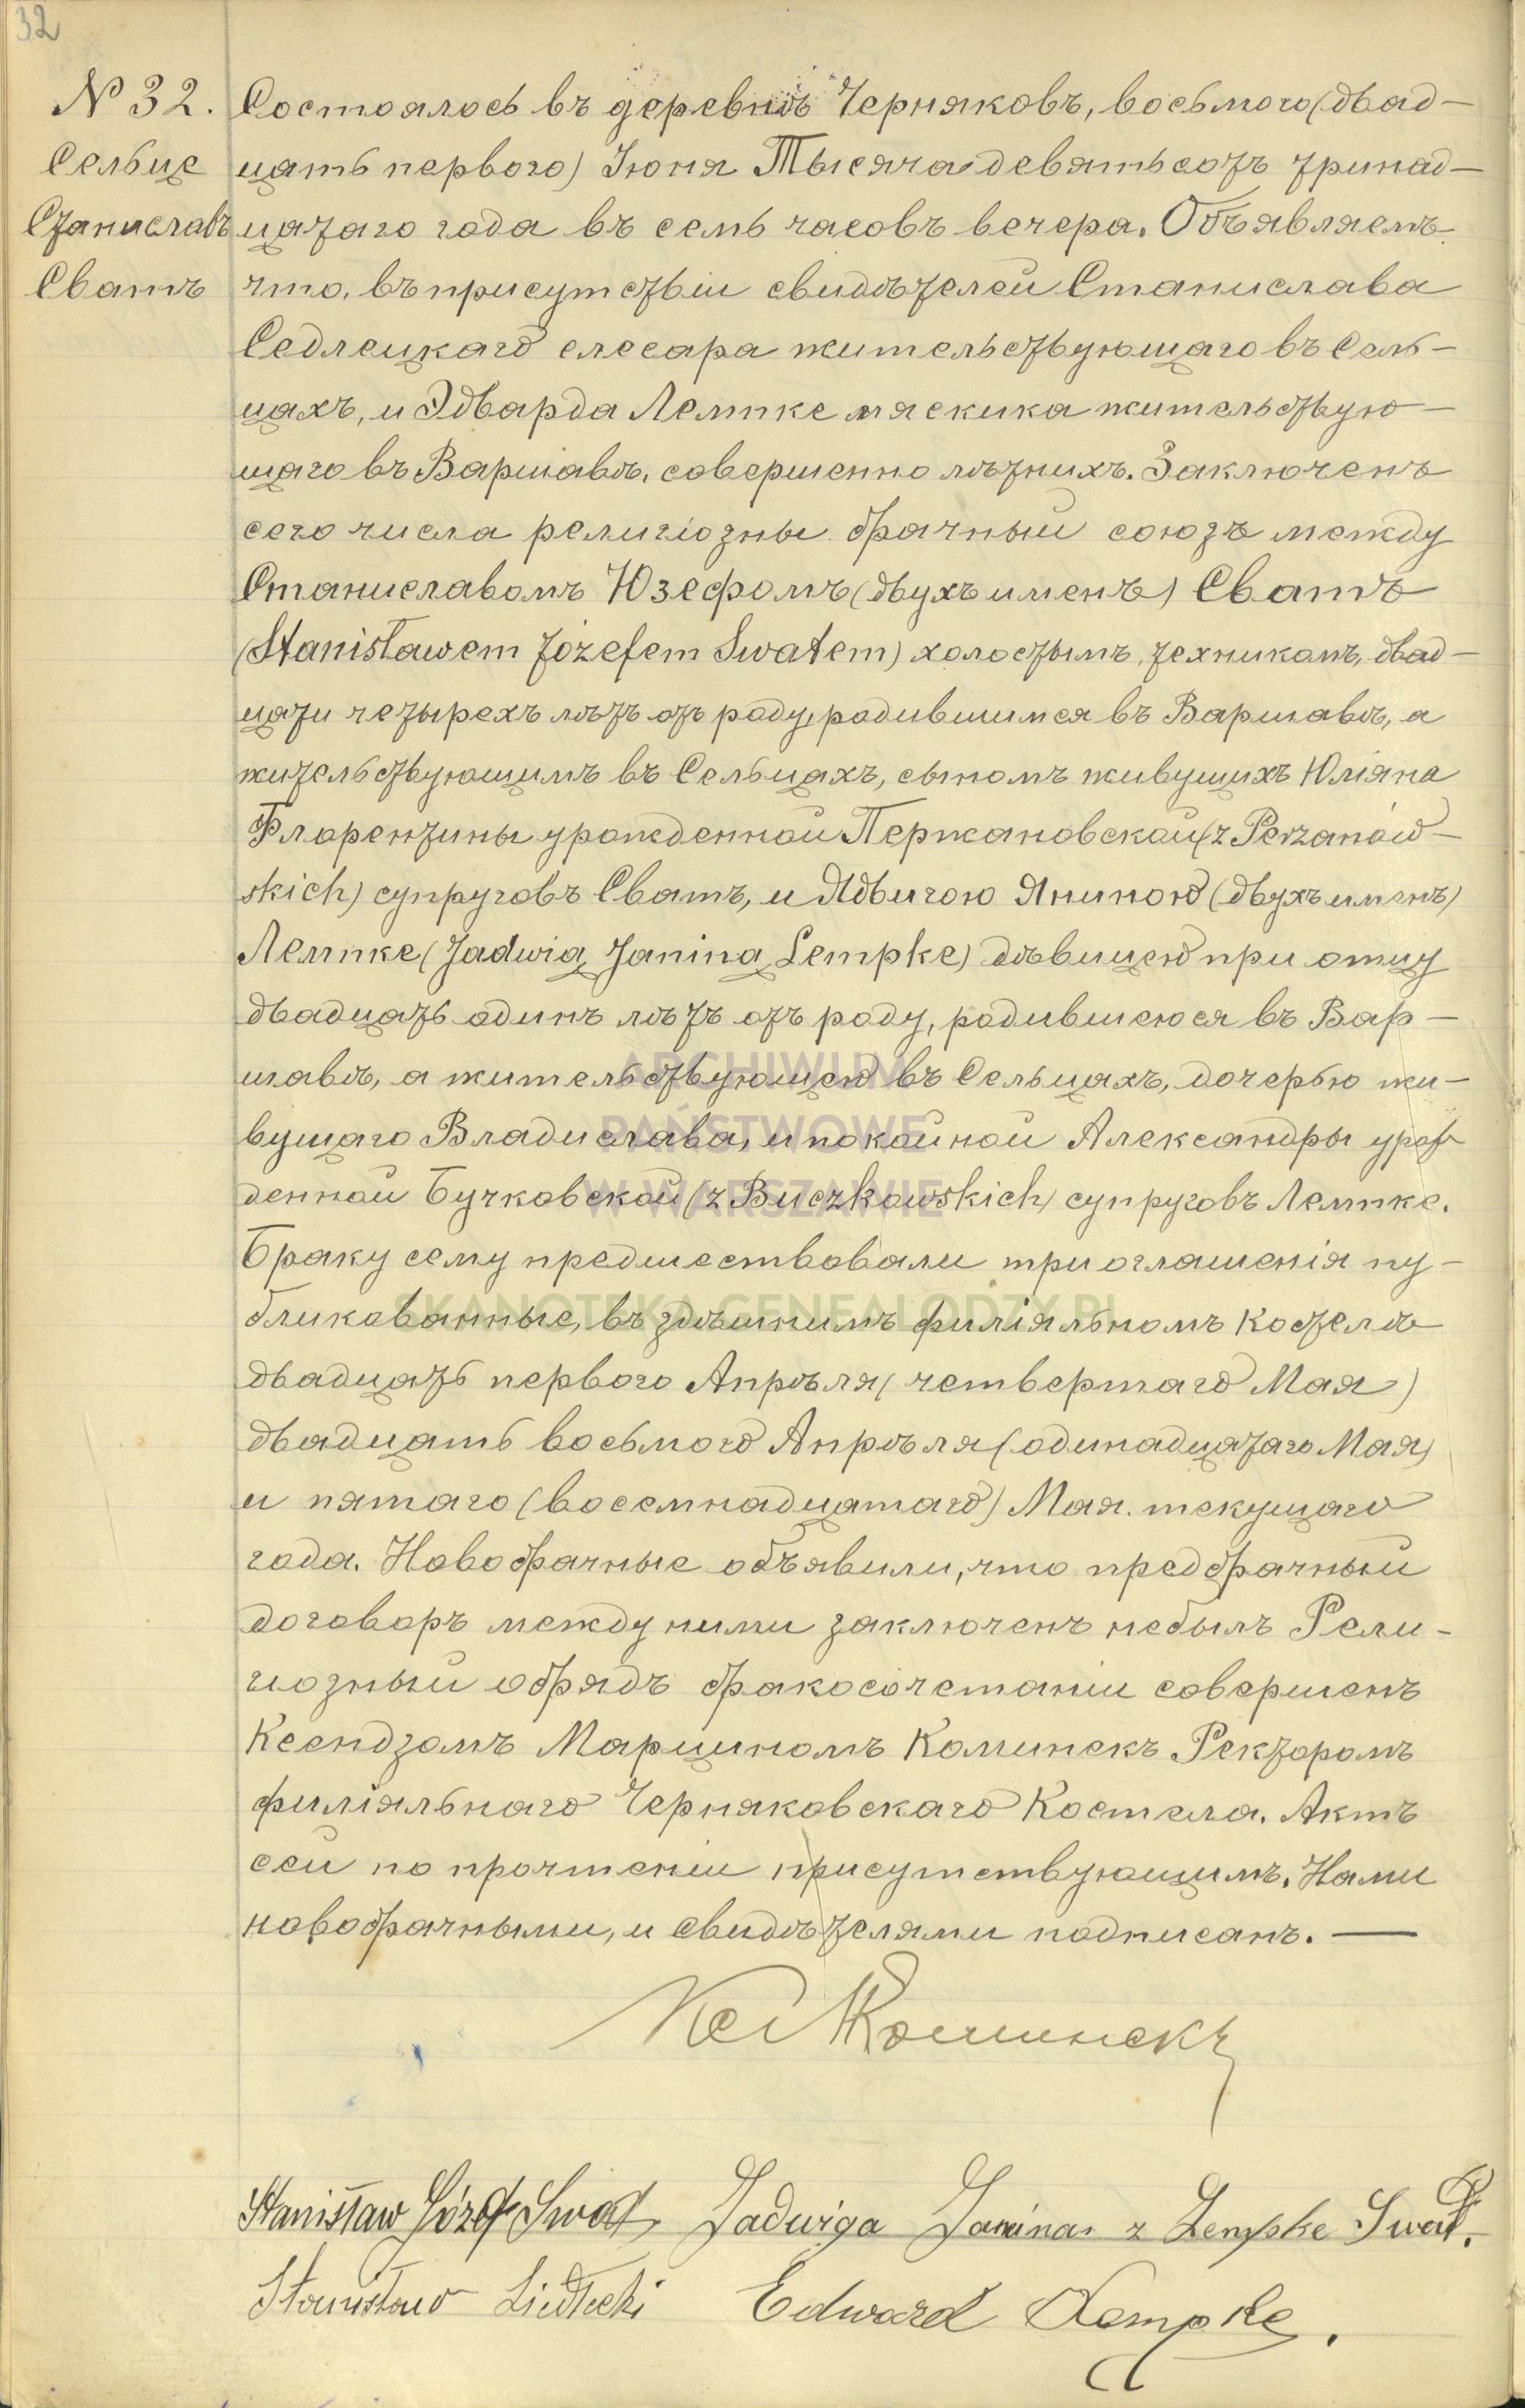 32
№ 32.
Сельце
Станиславъ
Сватъ
Состоялось въ деревнѣ Черняковъ, восьмого (двад-
цать первого) Іюня Тысяча девятьсотъ тринад-
цатаго года въ семь часовъ вечера. Объявляемъ
что, въ присутствіи свидѣтелей Станислава
Седлецкаго слесара жительствующаго въ Сель-
цахъ, и Эдварда Лемпке мясника жительствую-
щаго въ Варшавѣ, совершенно лѣтнихъ. Заключенъ
сего числа религіозны брачный союзъ между
Станиславомъ Юзефомъ (двухъ именъ) Сватъ
(Stanisławem Józefem Swatem) холостымъ, техникомъ, двад-
цати четырехъ лѣтъ отъ роду, родившимся въ Варшавѣ, а
жительствующимъ въ Сельцахъ, сыномъ живущихъ Юліяна
Флорентины урожденной Пержановской (z Perzanow-
skich) супруговъ Сватъ, и Ядвигою Яниною (двухъ именъ)
Лемпке (Jadwigą Janiną Lempke) дѣвицею при отцу
двадцать одинъ лѣтъ отъ роду, родившеюся въ Вар-
шавѣ, а жительствующею въ Сельцахъ, дочерью жи-
вущаго Владислава, и покойной Александры урож-
денной Бучковской (z Buczkowskich) супруговъ Лемпке.
Браку сему предшествовали три оглашенія пу-
бликованные, въ здѣшнимъ филіяльномъ костелѣ
двадцать первого Апрѣля (четвертаго Мая)
двадцать восьмого Апрѣля (одинадцатаго Мая)
и пятаго (восемнадцатаго) Мая. текущаго
года. Новобрачные объявили, что предбрачный
договоръ между ними заключенъ небылъ Рели-
гіозный обрядъ бракосочетаніи совершенъ
Ксендзомъ Марциномъ Коминекъ Ректоромъ
филіяльнаго Черняковскаго Костела. Актъ
сей по прочтеніи присутствующимъ, Нами
новобрачными, и свидѣтелями подписанъ. —
Кс М Коминекъ
Stanisław Józef Swat Jadwiga Janina z Lempke Swat.
Stanisław Siedlecki Edward Lempke.
ARCHIWUM
PAŃSTWOWE
W WARSZAWIE
SKANOTEKA.GENEALODZY.PL